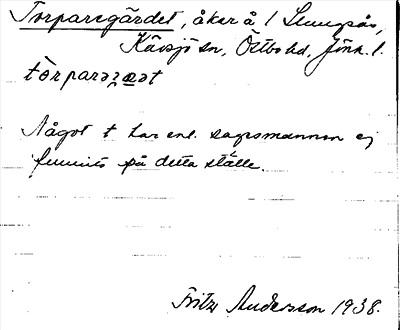 Torparegärdet, åker å / Slungsås,
Kävsjö sn, Östbo hd, Jönk. l.
tòrparəʒæət
Något t har enl. sagesmannen ej
funnits på detta ställe.
Fritz Andersson 1938.